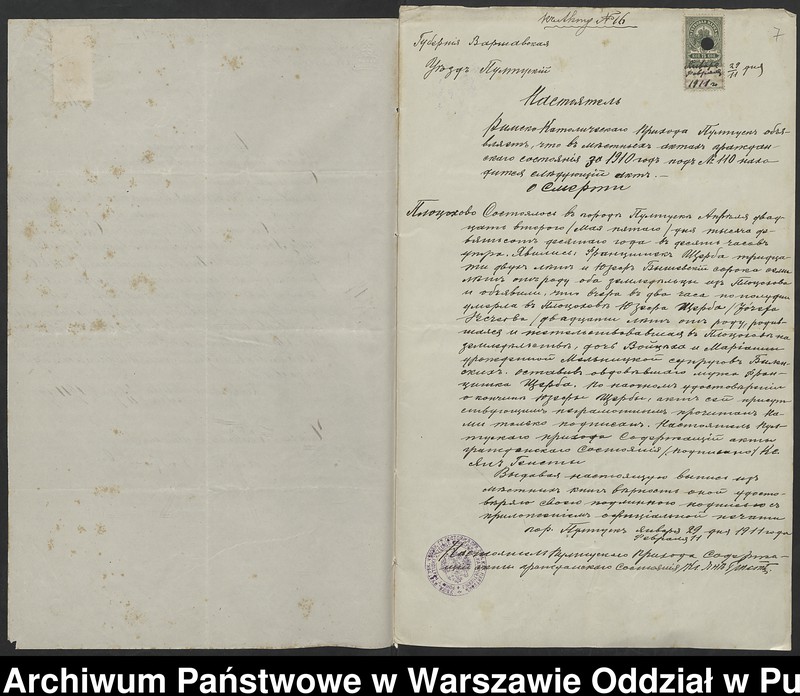 къ Акту № 16
7
Губернія Варшавская
Уѣздъ Пултускій
Января 29 дня
Февраля 11
1911 г.
Настоятель
Римско-Католическаго прихода Пултускъ объя-
вляетъ, что въ мѣстныхъ актахъ граждан-
скаго состоянія за 1910 годъ подъ № 110 нахо-
дится слѣдующій актъ.
О смерти
Плоцохово Состоялось въ городѣ Пултускѣ Апрѣля двад-
цать второго /Мая пятаго/ дня тысяча де-
вятьсотъ десятаго года въ десять часовъ
утра. Явились: Францишекъ Щерба тридца-
ти двухъ лѣтъ и Юзефъ сорока семи
лѣтъ отъ роду оба земледѣльцы изъ Плоцохова
и объявили, что вчера въ два часа пополудни
умерла въ Плоцоховѣ Юзефа Щерба /Józefa
/ двадцати лѣтъ отъ роду, родив-
шаяся и жительствовавшая въ Плоцоховѣ на
земледѣльствѣ, дочь Войцѣха и Маріанны
урожденной Мельницкой супруговъ
оставивъ овдовѣвшаго мужа Фран-
цишка Щерба. По наочномъ удостовѣреніи
о кончинѣ Юзефы Щербы, актъ сей присут-
ствующимъ неграмотнымъ прочитанъ На-
ми только подписанъ. Настоятель Пул-
тускаго прихода Содержащій акты
гражданскаго Состоянія /подписано/ Кс.
Янъ
Выдавая настоящую выпись изъ
мѣстныхъ книгъ вѣрность оной удосто-
вѣряю своею подлинною подписью съ
приложеніемъ официальной печати
гор. Пултускъ Января 29 дня 1911 года
Февраля 11
Настоятель Пултускаго прихода Содержа-
щій акты гражданскаго состоянія Кс. Янъ
Archiwum Państwowe w Warszawie Oddział w Pu